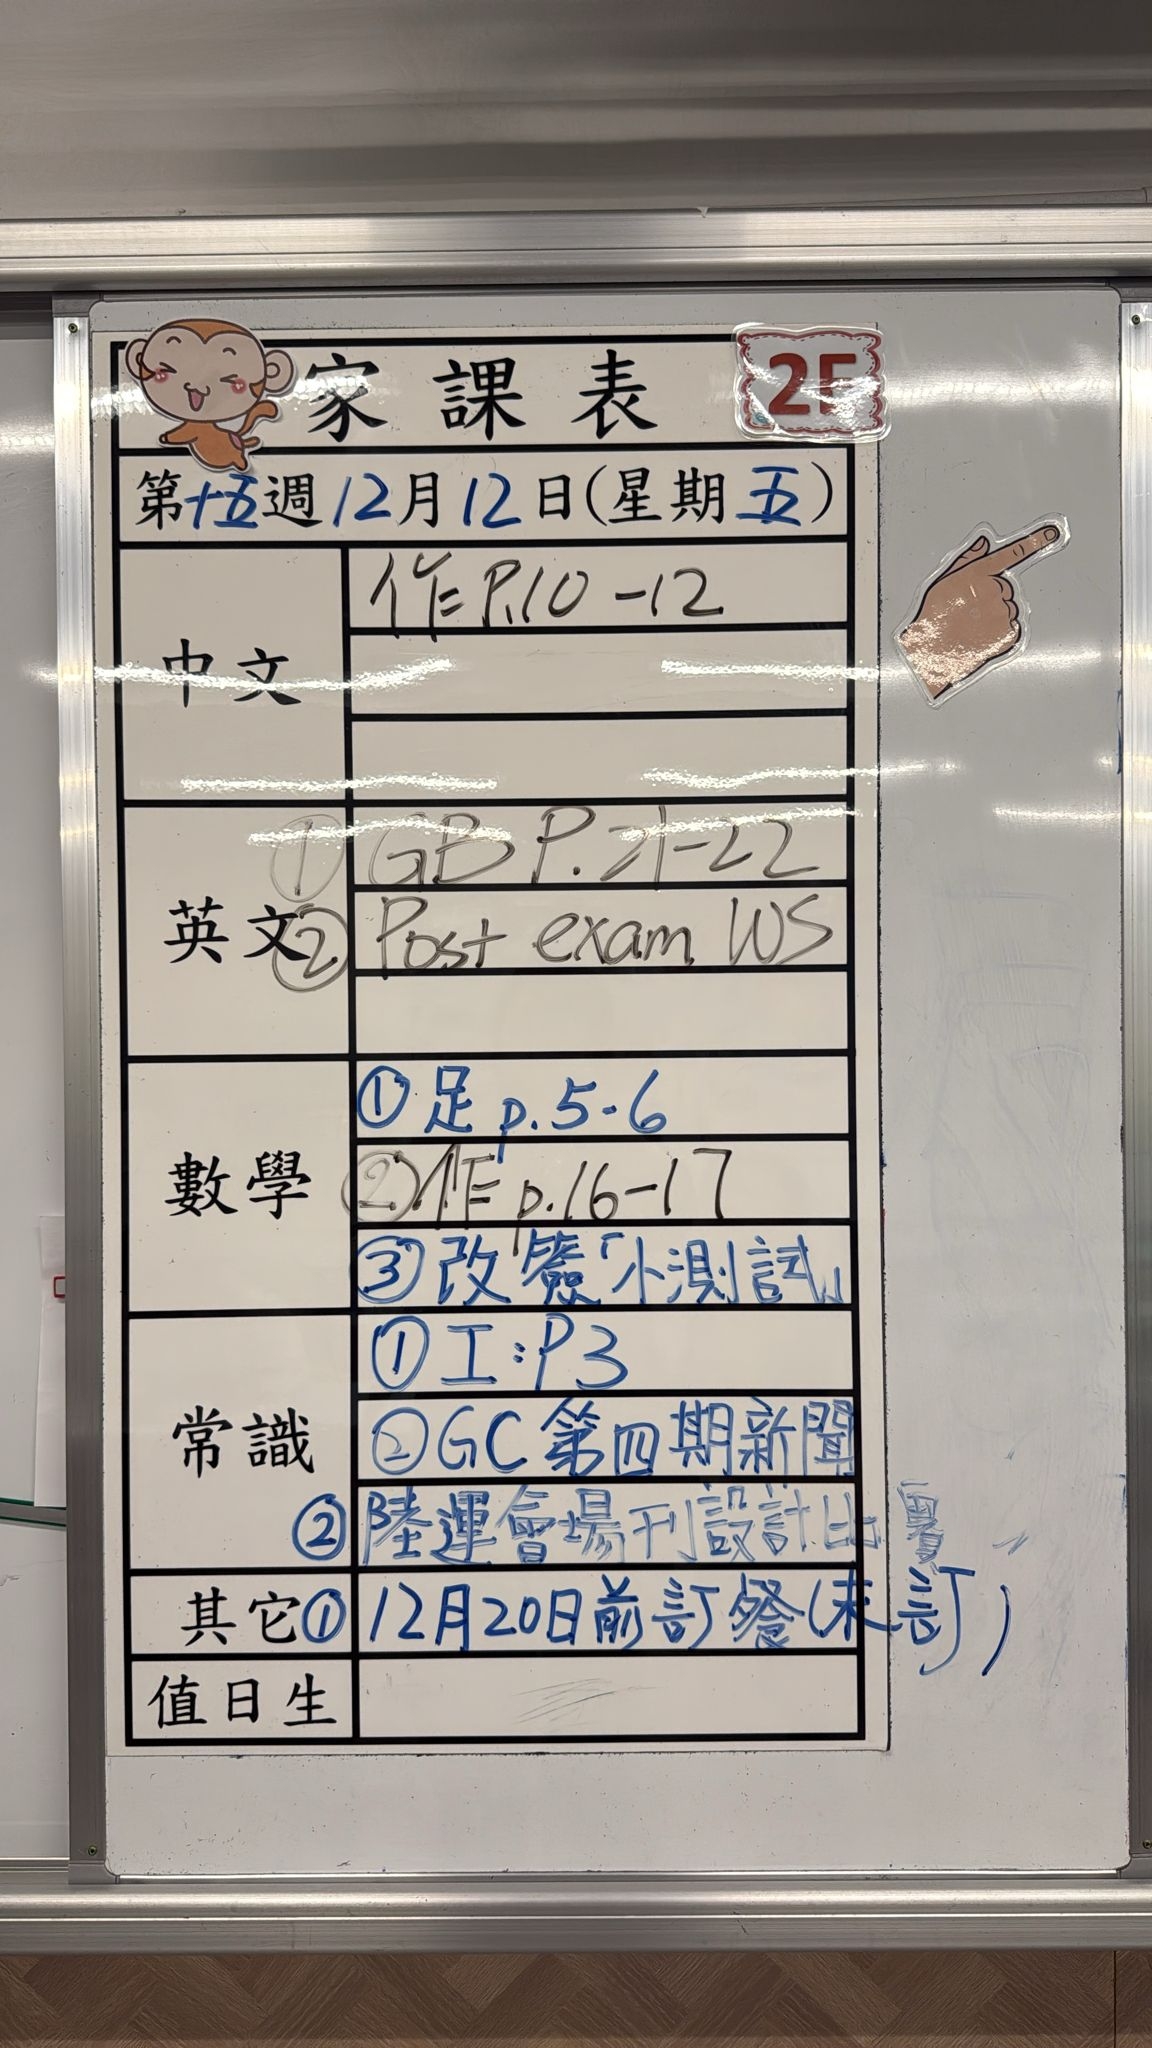 家課表 2F
第十五週12月12日(星期五)
中文
作:P.10-12
英文
① GB P.21-22
② Post exam WS
數學
① 足 p.5-6
② 作 p.16-17
③ 改簽「小測試」
常識
① 工:P3
② GC 第四期新聞
② 陸運會場刊設計比賽
其它
① 12月20日前訂餐(未訂)
值日生